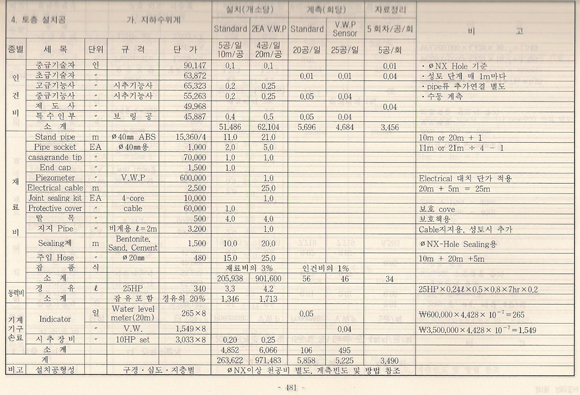 4. 토층 설치공 가. 지하수위계 설치(개소당) 계측(회당) 자료정리 비 고
Standard 2EA V.W.P Standard V.W.P Sensor 5회차/공/회
종별 세 목 단위 규 격 단 가 5공/일 10m/공 4공/일 20m/공 20공/일 25공/일 5공/회
인건비
중급기술자 인 90,147 0,1 0,1 0.01 · øNX Hole 기준
초급기술자 〃 63,872 0.01 0.01 0.04 · 성토 단계 매 1m마다
고급기능사 〃 시추기능사 65,323 0,2 0.25 · pipe류 추가연결 별도
중급기능사 〃 시추기능사 55,263 0,2 0.25 0,05 0,04 · 수동 계측
제 도 사 〃 49,968 0.04
특수인부 〃 보 링 공 45,887 0,4 0,5 0.05 0.04
소 계 51,486 62,104 5,696 4,684 3,456
재료비
Stand pipe m ø40㎜ ABS 15,360/4 11.0 21.0 10m or 20m + 1
Pipe socket EA ø40㎜용 1,000 2,0 5,0 11m or 21m ÷ 4 - 1
casagrande tip 〃 70,000 1,0 1,0
End cap 〃 1,500 1,0
Piezometer 〃 V,W,P 600,000 1,0 Electrical 대치 단가 적용
Electrical cable m 2,500 25.0 20m + 5m = 25m
Joint sealing kit EA 4-core 10,000 1,0
Protective cover 〃 cable 60,000 1,0 보호 cove
말 목 〃 500 4,0 4,0 보호책용
지지 Pipe 〃 비계용 ℓ=2m 3,200 1,0 Cable지지용, 성토시 추가
Sealing제 m Bentonite, Sand, Cement 1,500 10.0 20.0 øNX-Hole Sealing용
주입 Hose 〃 ø20㎜ 480 15.0 25.0 10m + 20m +5m
잡 품 식 재료비의 3% 인건비의 1%
소 계 205,938 901,600 56 46 34
동력비
경 유 ℓ 25HP 340 3.3 4.2 25HP×0.24ℓ×0.5×0.8×7hr×0.2
소 계 잡유 포함 경유의 20% 1,346 1,713
기계기구손료
Indicator 일 Water level meter(20m) 265×8 0.05 ₩600,000×4,428×10⁻⁷=265
〃 V.W. 1,549×8 0.04 ₩3,500,000×4,428×10⁻⁷=1,549
시추장비 〃 10HP set 3,033×8 0,20 0,25
소 계 4,852 6,066 106 495
계 263,622 971,483 5,858 5,225 3,490
비고 설치공형성 구경·심도·지층별 øNX이상 천공비 별도, 계측빈도 및 방법 참조
- 481 -